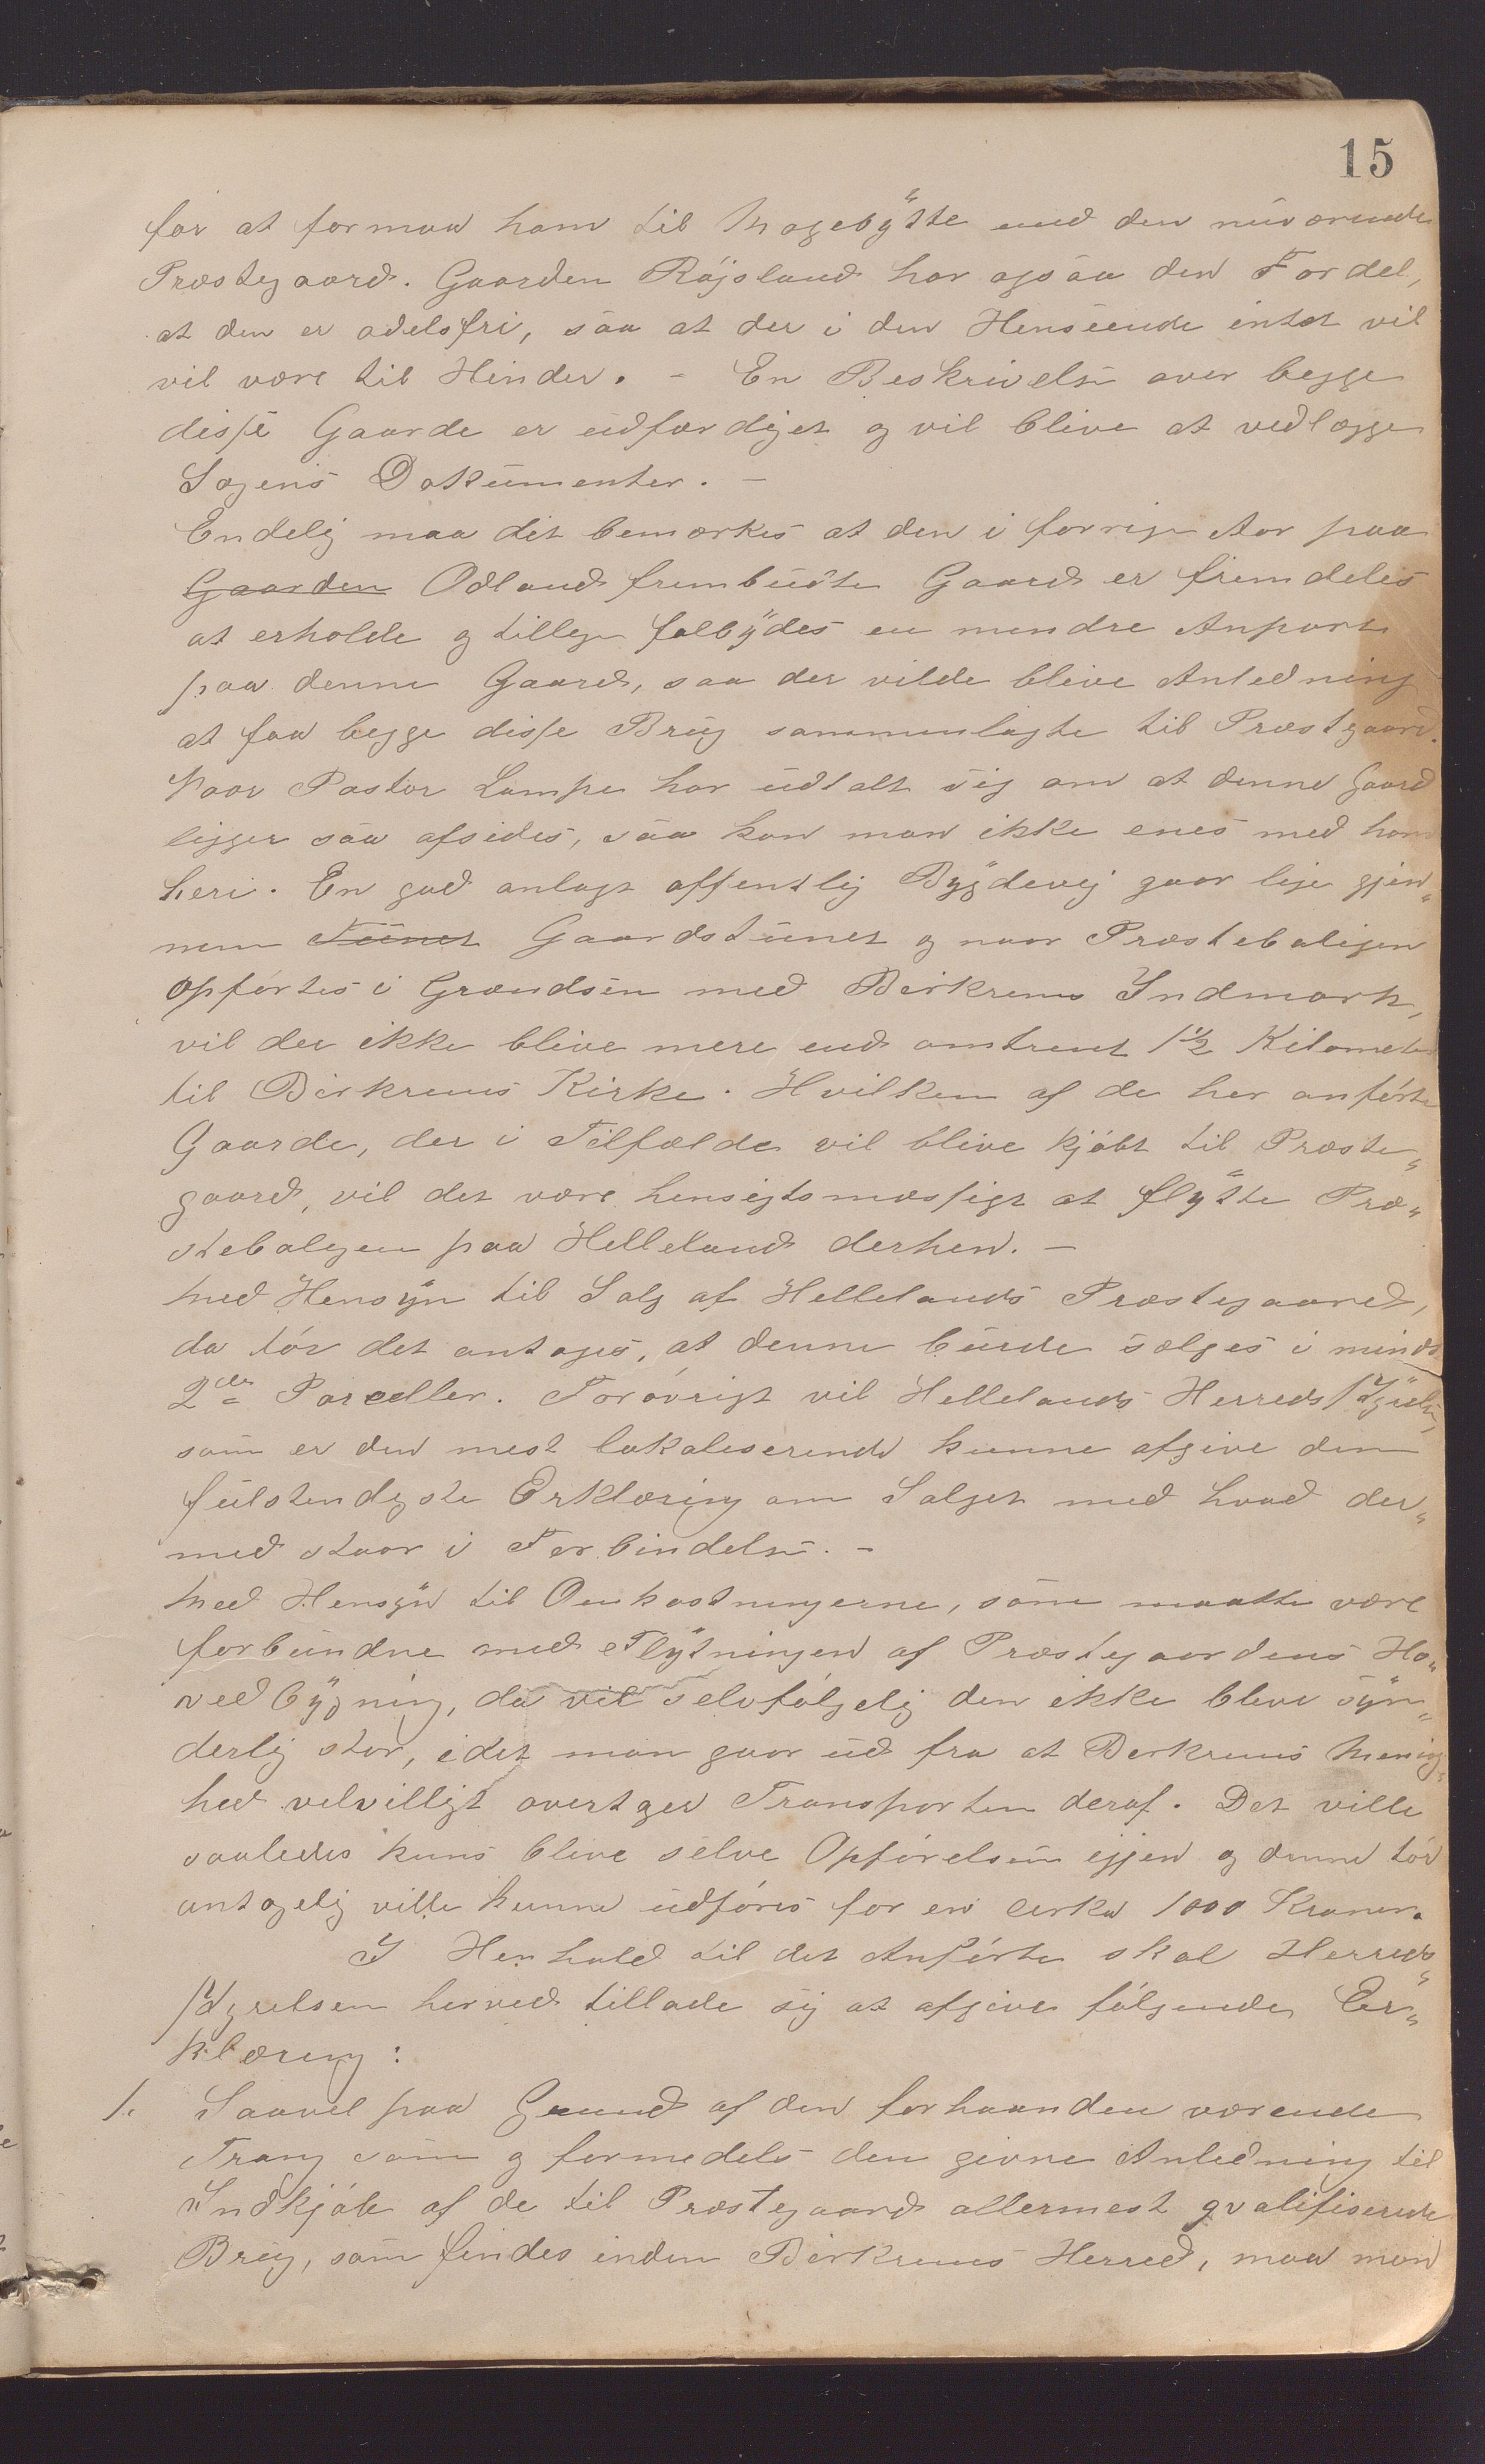 15
for at formaa ham til Magebytte med den nuværende
Præstegaard. Gaarden Røjsland har ogsaa den Fordel,
at den er odelsfri, saa at der i den Henseende intet vil
vil være til Hinder. - En Beskrivelse over begge
disse Gaarde er udfærdiget og vil blive at vedlægge
Sagens Dokumenter. -
Endelig maa det bemærkes at den i forrige Aar paa
Gaarden Odland frembudte Gaard er fremdeles
at erholde og tillige falbydes en mindre Anpart
paa denne Gaard, saa der vilde blive Anledning
at faa begge disse Brug sammenlagte til Præstgaard.
Naar Pastor Lampe har udtalt sig om at denne Gaard
ligger saa afsides, saa kan man ikke enes med ham
heri. En god anlagt offentlig Bygdevej gaar lige gjen„
nem Tunet Gaardstunet og naar Præsteboligen
opførtes i Grændsen med Birkrems Indmark,
vil der ikke blive mere end omtrent 1½ Kilometer
til Birkrems Kirke. Hvilken af de her anførte
Gaarde, der i Tilfælde vil blive kjøbt til Præste„
gaard, vil det være hensigtsmæssigt at flytte Præ„
steboligen paa Helleland derhen. -
Med Hensyn til Salg af Hellelands Præstegaard,
da tør det antages, at denne burde sælges i mindst
2de Parceller. Forøvrigt vil Hellelands Herredsstyrelse,
som er den mest lokaliserende kunne afgive den
fulstendigste Erklæring om Salget med hvad der„
med staar i Forbindelse. -
Med Hensyn til Omkostningerne, som maatte være
forbundne med Flytningen af Præstegaardens Ho„
vedbygning, da vil selvfølgelig den ikke blive syn„
derlig stor, idet man gaar ud fra at Berkrems Menig„
hed velvilligt overtager Transporten deraf. Det ville
saaledes kuns blive selve Opførelsen igjen og denne tør
antagelig ville kunne udføres for en cirka 1000 Kroner.
I Henhold til det Anførte skal Herreds„
styrelsen herved tillade sig at afgive følgende Er„
klæring:
1. Saavel paa Grund af den forhaanden værende
Trang som og formedels den givne Anledning til
Indkjøb af de til Præstegaard allermest qvalifiserede
Brug, som findes inden Birkrems Herred, maa man